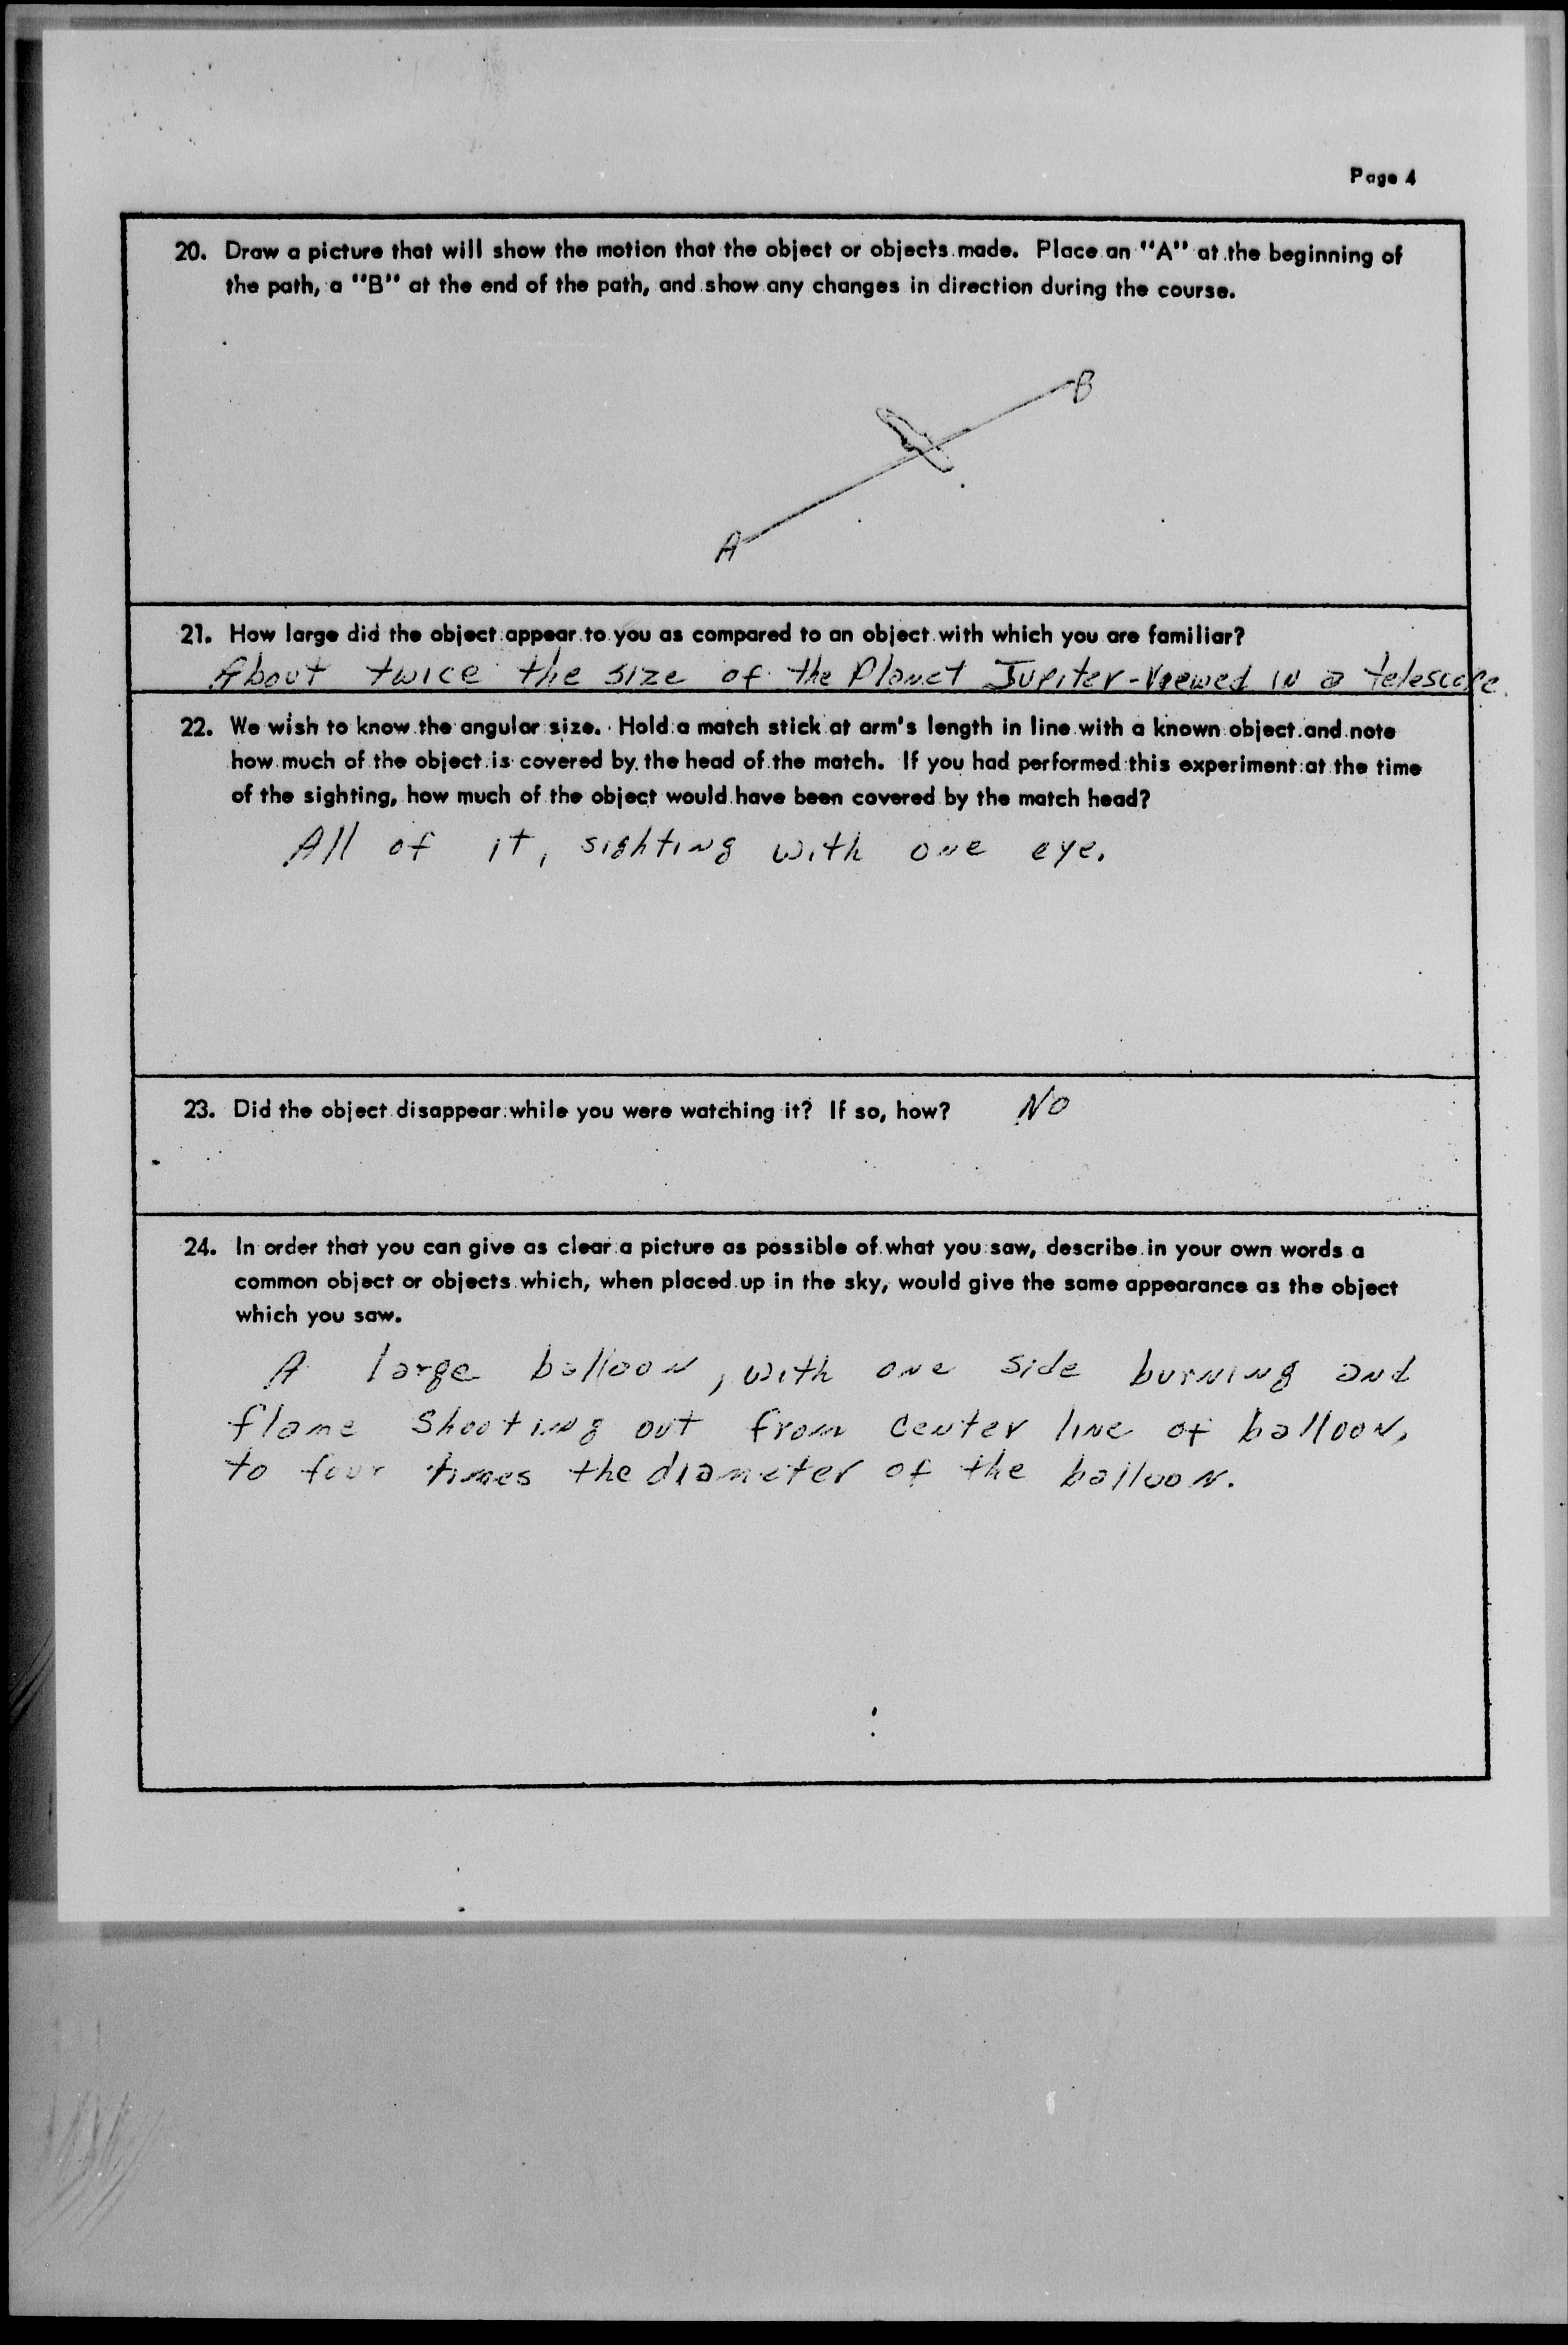 Page 4
20. Draw a picture that will show the motion that the object or objects made. Place an "A" at the beginning of
the path, a "B" at the end of the path, and show any changes in direction during the course.
B
A
21. How large did the object appear to you as compared to an object with which you are familiar?
About twice the size of the Planet Jupiter-Viewed in a telescope.
22. We wish to know the angular size. Hold a match stick at arm's length in line with a known object and note
how much of the object is covered by the head of the match. If you had performed this experiment at the time
of the sighting, how much of the object would have been covered by the match head?
All of it, sighting with one eye.
23. Did the object disappear while you were watching it? If so, how? No
24. In order that you can give as clear a picture as possible of what you saw, describe in your own words a
common object or objects which, when placed up in the sky, would give the same appearance as the object
which you saw.
A large balloon, with one side burning and
flame shooting out from center line of balloon,
to four times the diameter of the balloon.